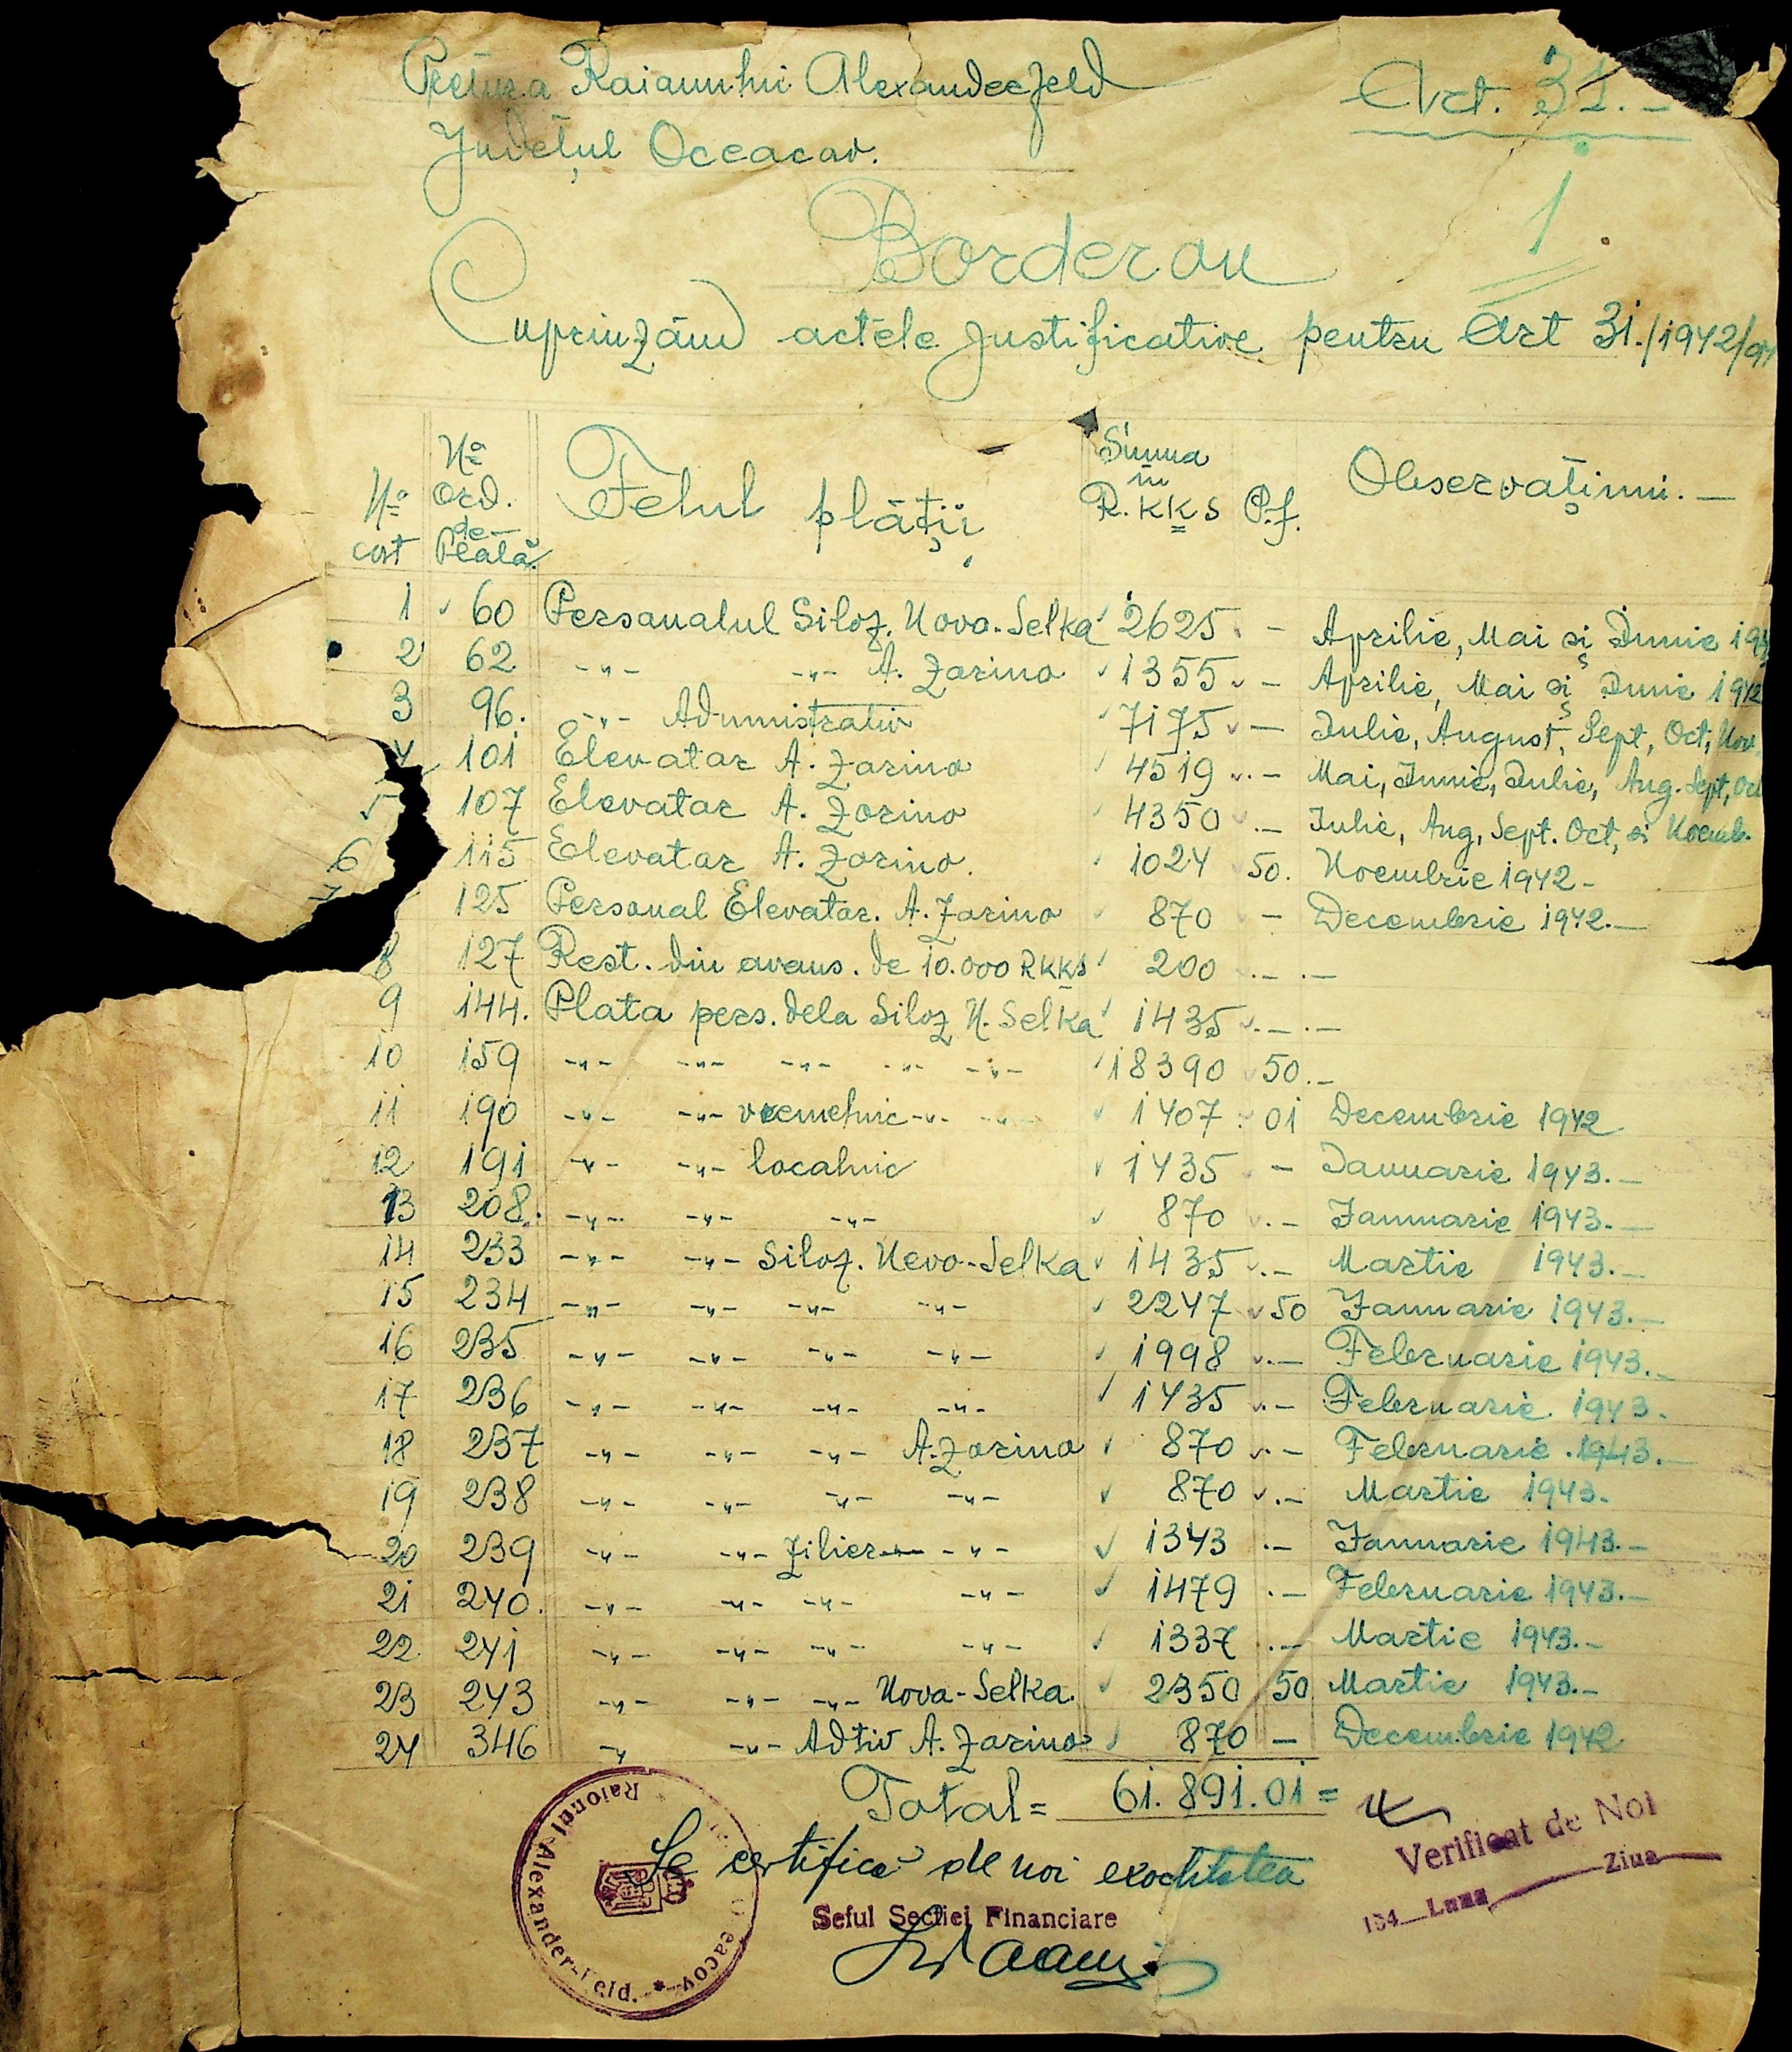 Pretura Raionului Alexanderfeld
Art. 31.-
Județul Oceacov.
1
Borderou
Cuprinzând actele justificative pentru Art 31./1942/94
Nº cost | Nº Ord. de Plată | Felul plății | Suma în R.KKS | Pf. | Observațiuni.-
1 60 Personalul Siloz. Novo-Selka 2625 - Aprilie, Mai și Iunie 194
2 62 -"- -"- A. Zarino 1355 - Aprilie, Mai și Iunie 1942
3 96. -"- Administrativ 7175 - Iulie, August, Sept, Oct, Nov,
4 101 Elevator A. Zarino 4519 - Mai, Iunie, Iulie, Aug. Sept, Oct
5 107 Elevator A. Zorino 4350 - Iulie, Aug, Sept. Oct, și Noemb.
6 115 Elevator A. Zarino. 1024 50. Noembrie 1942-
7 125 Personal Elevator. A. Zarino 870 - Decembrie 1942.-
8 127 Rest. din avans. de 10.000 RKKS 200 -.-
9 144. Plata pers. dela Siloz N. Selka 1435 -.-
10 159 -"- -"- -"- -"- -"- 18390 50.-
11 190 -"- -"- vremelnic -"- 1407 01 Decembrie 1942
12 191 -"- -"- localnic 1435 - Ianuarie 1943.-
13 208. -"- -"- -"- 870 .- Ianuarie 1943.-
14 233 -"- -"- Siloz. Nevo-Selka 1435 .- Martie 1943.-
15 234 -"- -"- -"- -"- 2247 50 Ianuarie 1943.-
16 235 -"- -"- -"- -"- 1998 .- Februarie 1943.-
17 236 -"- -"- -"- -"- 1435 .- Februarie 1943.
18 237 -"- -"- -"- A. Zorino 870 .- Februarie 1943.-
19 238 -"- -"- -"- -"- 870 .- Martie 1943.
20 239 -"- -"- Zilier -"- 1343 .- Ianuarie 1943.-
21 240. -"- -"- -"- -"- 1479 .- Februarie 1943.-
22 241 -"- -"- -"- -"- 1337 .- Martie 1943.-
23 243 -"- -"- -"- Nova-Selka. 2350 50 Martie 1943.-
24 346 -"- -"- Adtiv A. Zarino 870 - Decembrie 1942
Total = 61.891.01 =
Se certifică de noi exactitatea
Seful Sectiei Financiare
Verificat de Noi
194__Luna____Ziua
Raionul Alexander-Feld.